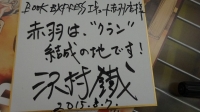 BOOK EXPRESS エキュート赤羽店様
赤羽は、"クラン"
結成の地です!
沢村鐵
2015.8.7.